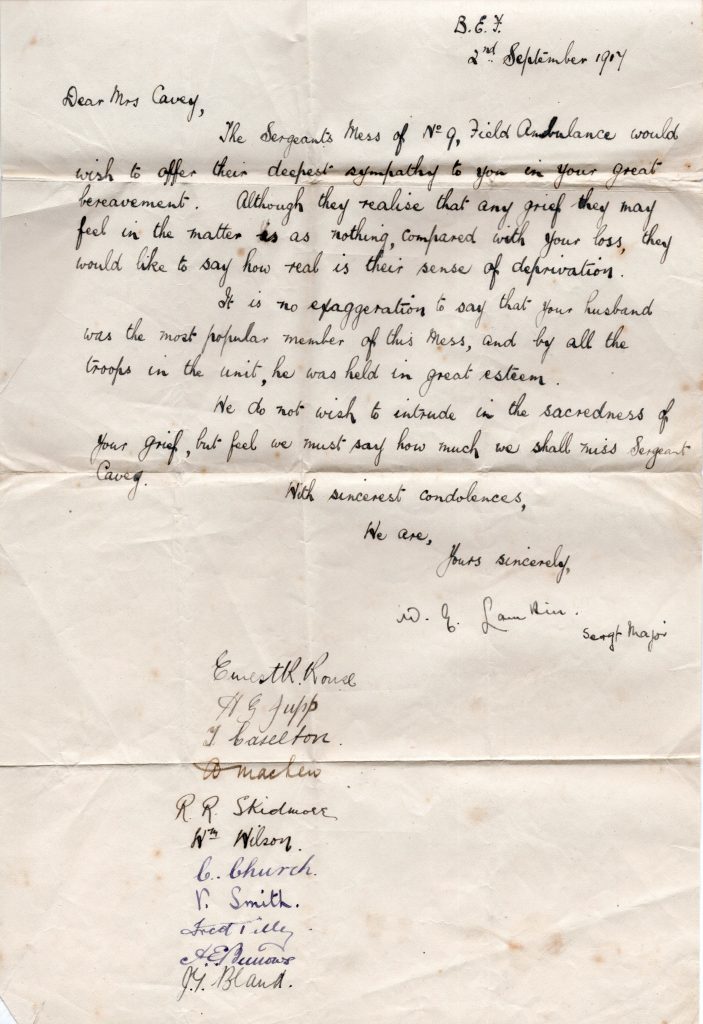 B.E.F.
2nd September 1917
Dear Mrs Cavey,
The Sergeants Mess of No 9, Field Ambulance would
wish to offer their deepest sympathy to you in your great
bereavement. Although they realise that any grief they may
feel in the matter is as nothing, compared with your loss, they
would like to say how real is their sense of deprivation.
It is no exaggeration to say that your husband
was the most popular member of this Mess, and by all the
troops in the unit, he was held in great esteem.
We do not wish to intrude in the sacredness of
your grief, but feel we must say how much we shall miss Sergeant
Cavey.
With sincerest condolences,
We are,
Yours sincerely,
W. E. Lamkin.
Sergt Major
Ernest R.
H G Jupp
T Caselton.
R. R. Skidmore
Wm Wilson.
C. Church.
V. Smith.
Fred Tilley
A.E. Burrows
J.T. Bland.